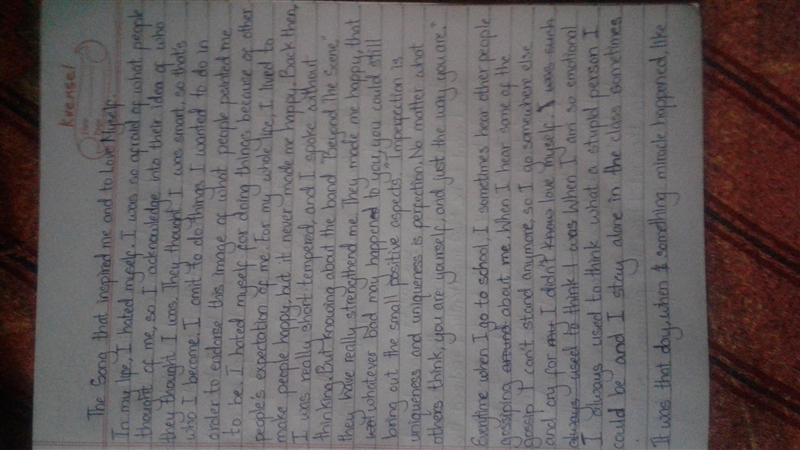 Krense!
The Song that inspired me and to Love Myself.
In my life, I hated myself. I was so afraid of what people
thought of me, so I acknowledge into their idea of who
they thought I was. They thought I was smart, so that's
who I become. I omit to do things I wanted to do in
order to endorse this image of what people painted me
to be. I hated myself for doing things because of other
people's expectation of me. For my whole life, I lived to
make people happy, but it never made me happy. Back then,
I was really short tempered and I spoke without
thinking. But knowing about the band "Beyond The Scene,"
they have really strengthend me. They made me happy, that
whatever bad may happened to you, you could still
bring out the small positive aspects. "Imperfection is
uniqueness and uniqueness is perfection. No matter what
others think, you are yourself and just the way you are."
Everytime when I go to school, I sometimes hear other people
gossiping around about me. When I hear some of the
gossip I can't stand anymore, so I go somewhere else
and cry for I didn't know love myself. I was such
always used to think I was when I am so emotional
I always used to think what a stupid person I
could be and I stay alone in the class sometimes
It was that day, when something miracle happened like